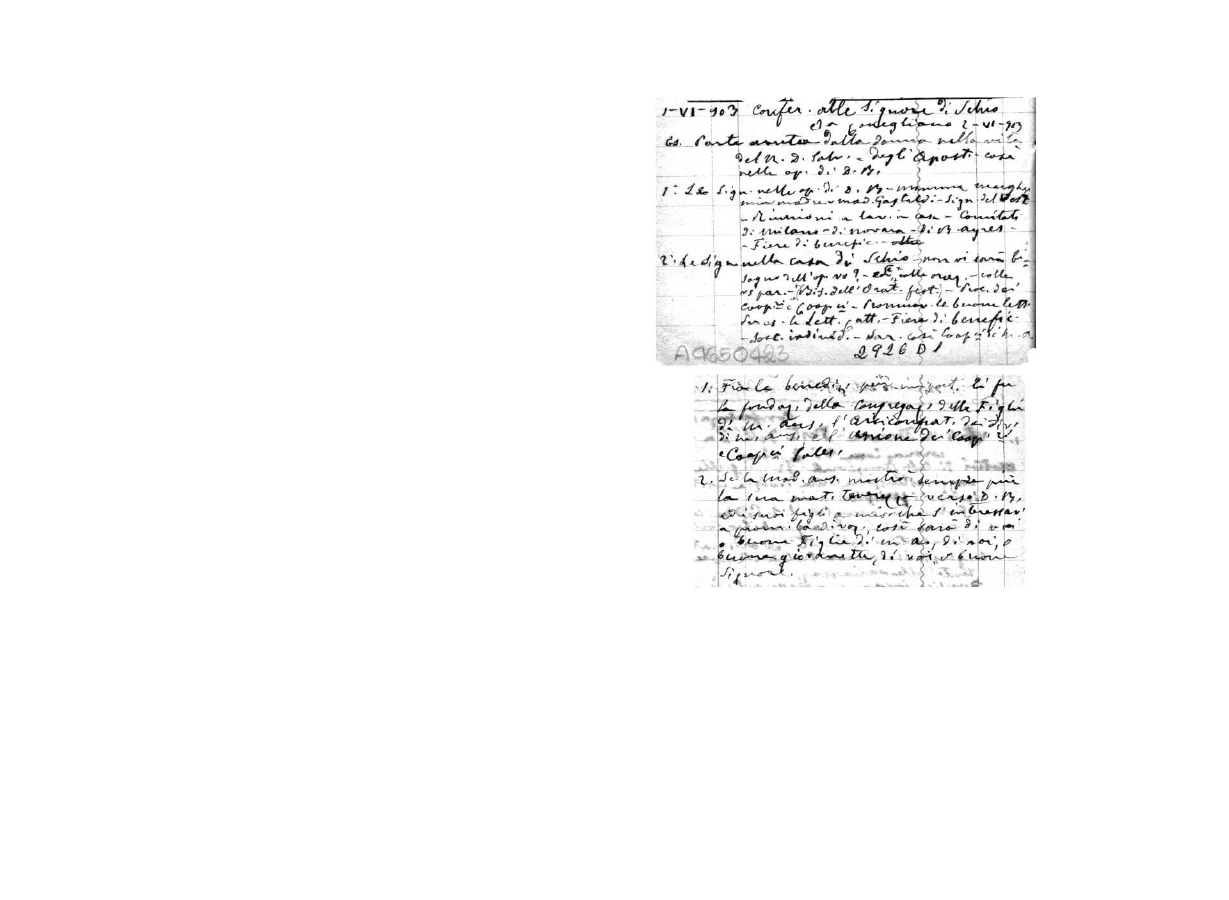 1-VI-903 Confer. alle Signore di Schio
e a Conegliano 2-VI-903
Es. Parte avuta dalla donna nella vita
del N. D. Salv. e degli Apost. - così
nelle op. di D. B.
1º Le Sign. nelle op. di D. B. - mamma Margher
mia madre mad. Gastaldi - Sign. del
- Riunioni a lav. in casa - Comitati
di Milano - di Novara - di B. Ayres -
- Fiere di benefic. - altre
2º Le Sign. nella casa di Schio non vi sarà bi-
sogno dell'op. vs? - colle orag. - colle
dell'Orat. fest. -
Coop.ri e Coop.ci - Promuov. le buone lett.
le Lett. Catt. - Fiere di benefic.
- Soct. individ. - Sar. così Coop.ci
A9650423 2926 D1
1. Fra le benediz. più import. vi fu
la fondaz. della Congregaz. delle Figlie
di M. Aus., l'Arciconfrat. dei div.
di M. Aus. e l'Unione dei Coop.ri
e Coop.ci Sales.
2. Se la Mad. Aus. mostrò sempre più
la sua mat. tenerezza verso D. B.
ed i suoi figli a misura che s'interessav.
a prom. la divoz., così sarà di voi
o buone Figlie di M. Aus., di voi, o
buone giovanette, di voi, o buone
Signore.